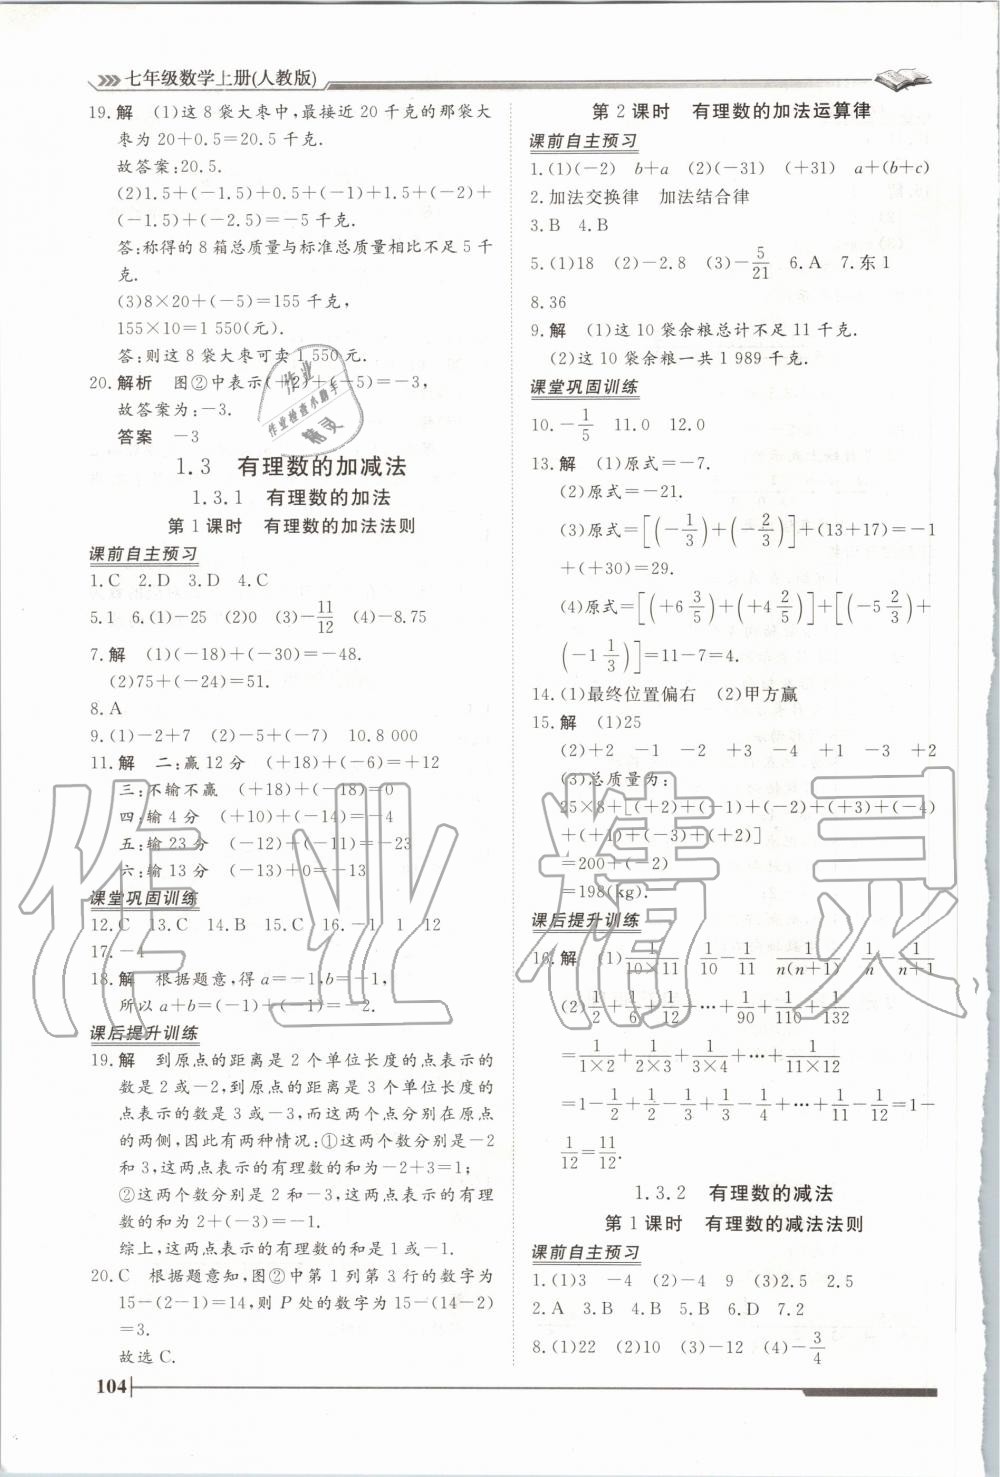 七年级数学上册(人教版)
19. 解 (1)这 8 袋大枣中,最接近 20 千克的一袋大
枣为 20+0.5=20.5 千克.
故答案:20.5.
(2)1.5+(-1.5)+0.5+(-1)+1.5+(-2)+
(-1.5)+(-2.5)=-5 千克.
答:称得的 8 箱总质量与标准总质量相比不足 5 千
克.
(3)8×20+(-5)=155 千克,
155×10=1 550(元).
答:则这 8 袋大枣可卖 1 550元.
20. 解析 图②中表示(+2)+(-5)=-3,
故答案为:-3.
答案 -3
1.3 有理数的加减法
1.3.1 有理数的加法
第 1 课时 有理数的加法法则
课前自主预习
1.C 2.D 3.D 4.C
5.1 6.(1)-25 (2)0 (3)-11/12 (4)-8.75
7.解 (1)(-18)+(-30)=-48.
(2)75+(-24)=51.
8.A
9.(1)-2+7 (2)-5+(-7) 10.8 000
11.解 二:赢12分 (+18)+(-6)=+12
三:不输不赢 (+18)+(-18)=0
四:输 4 分 (+10)+(-14)=-4
五:输 23 分 (-12)+(-11)=-23
六:输 13 分 (-13)+0=-13
课堂巩固训练
12.C 13.C 14.B 15.C 16.-1 1 12
17.-4
18.解 根据题意,得 a=-1,b=-1,
所以 a+b=(-1)+(-1)=-2.
课后提升训练
19.解 到原点的距离是 2 个单位长度的点表示的
数是 2 或-2,到原点的距离是 3 个单位长度的
点表示的数是 3 或-3,而这两个点分别在原点
的两侧,因此有两种情况:①这两个数分别是-2
和 3,这两点表示的有理数的和为-2+3=1;
②这两个数分别是 2 和-3,这两点表示的有理
数的和为 2+(-3)=-1.
综上,这两点表示的有理数的和是 1 或-1.
20.C 根据题意知,图②中第 1 列第 3 行的数字为
15-(2-1)=14,则 P 处的数字为 15-(14-2)
=3.
故选 C.
104
第 2 课时 有理数的加法运算律
课前自主预习
1.(1)(-2) b+a (2)(-31) (+31) a+(b+c)
2.加法交换律 加法结合律
3.B 4.B
5.(1)18 (2)-2.8 (3)-5/21 6.A 7.东 1
8.36
9.解 (1)这 10 袋余粮总计不足 11 千克.
(2)这 10 袋余粮一共 1 989 千克.
课堂巩固训练
10.-1/5 11.0 12.0
13.解 (1)原式=-7.
(2)原式=-21.
(3)原式=[(-1/3)+(-2/3)]+(13+17)=-1
+(+30)=29.
(4)原式=[(+6 3/5)+(+4 2/5)]+[(-5 2/3)+
(-1 1/3)]=11-7=4.
14.(1)最终位置偏右 (2)甲方赢
15.解 (1)25
(2)+2 -1 -2 +3 -4 +1 -3 +2
(3)总质量为:
25×8+[(+2)+(-1)+(-2)+(+3)+(-4)
+(+1)+(-3)+(+2)]
=200+(-2)
=198(kg).
课后提升训练
16.解 (1)1/(10×11) 1/10-1/11 1/n(n+1) 1/n-1/(n+1)
(2)1/2+1/6+1/12+…+1/90+1/110+1/132
=1/(1×2)+1/(2×3)+1/(3×4)+…+1/(11×12)
=1-1/2+1/2-1/3+1/3-1/4+…+1/11-1/12=1-
1/12=11/12.
1.3.2 有理数的减法
第 1 课时 有理数的减法法则
课前自主预习
1.(1)3 -4 (2)-4 9 (3)2.5 2.5
2.A 3.B 4.B 5.B 6.D 7.2
8.(1)22 (2)10 (3)-12 (4)-3/4
作业
作业检查小助手
精灵
作业精灵